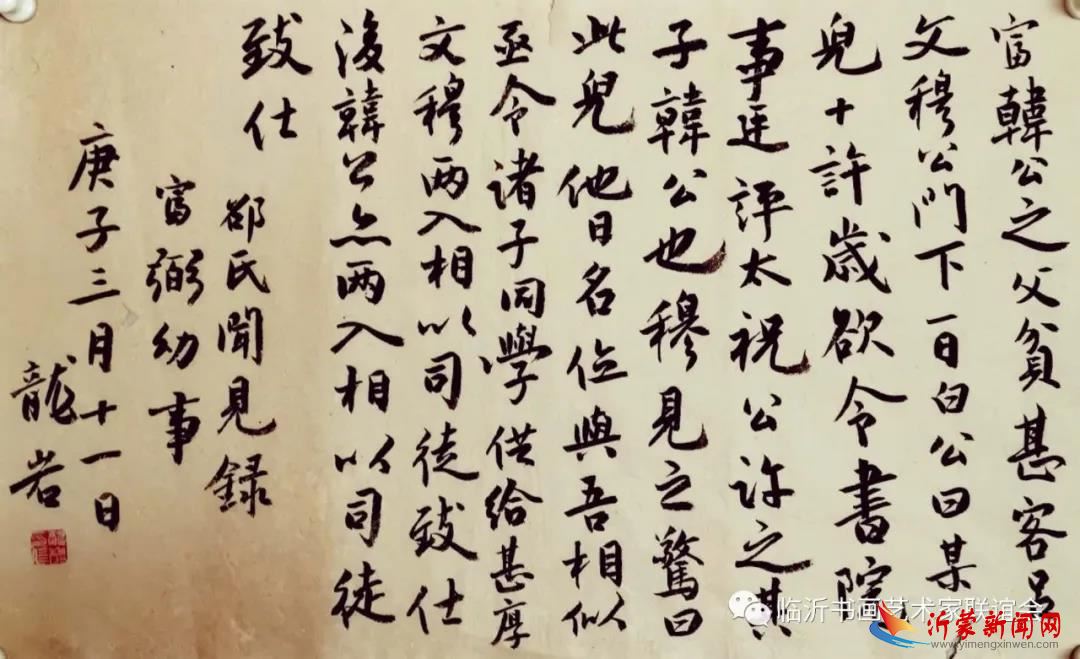 富韓公之父貧甚客呂
文穆公門下一日白公曰某
兒十許歲欲令書院
事廷評太祝公許之其
子韓公也穆見之驚曰
此兒他日名位與吾相似
亟令諸子同學供給甚厚
文穆两入相以司徒致仕
後韓公亦两入相以司徒
致仕
邵氏聞見錄
富弼幼事
庚子三月十一日
龍岩
临沂书画艺术家联谊会
沂蒙新闻网
www.yimengxinwen.com